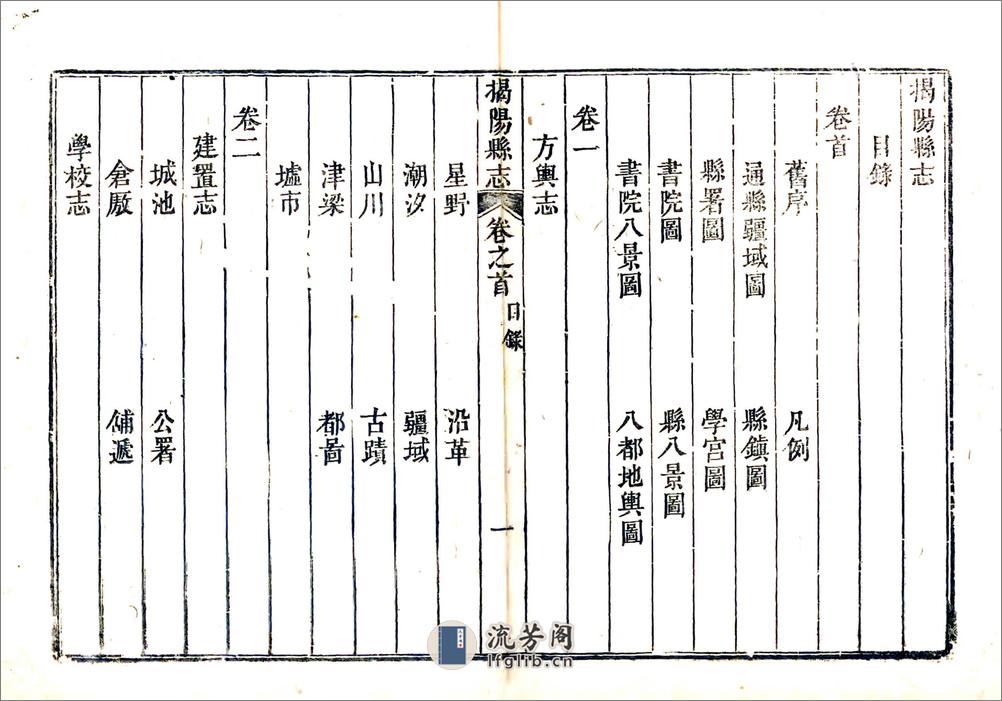 揭陽縣志
目錄
卷首
舊序 凡例
通縣疆域圖 縣鎮圖
縣署圖 學宮圖
書院圖 縣八景圖
書院八景圖 八都地輿圖
卷一
方輿志
揭陽縣志 卷之首 目錄 一
星野 沿革
潮汐 疆域
山川 古蹟
津梁 都啚
墟市
卷二
建置志
城池 公署
倉厫 舖遞
學校志
流芳阁
lfglib.cn